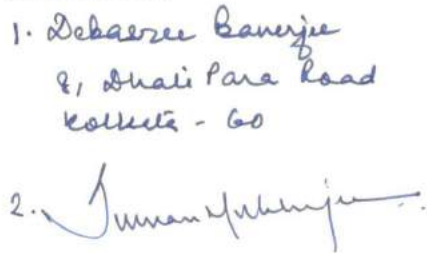 1. Debasree Banerjee
8, Dhali Para Road
Kolkata - 60
2. Suman Mukherjee